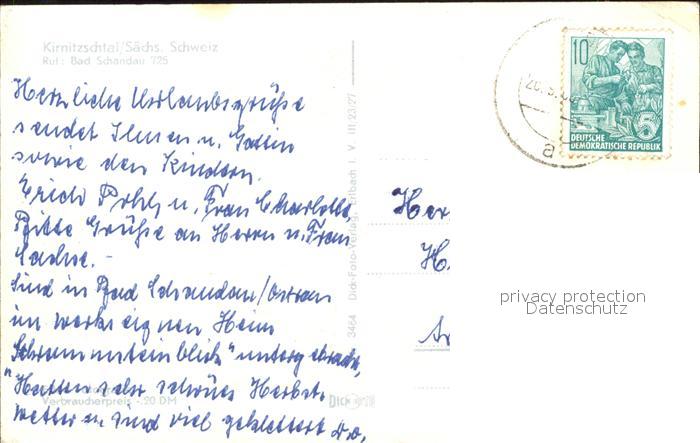 Kirnitzschtal/Sächs. Schweiz
Ruf: Bad Schandau 725
Herzliche Urlaubsgrüße
sendet Ihnen u. Gattin
sowie den Kindern.
Erich Pohl u. Frau Charlotte,
Bitte Grüße an Herrn u. Frau
Sachse. -
Sind in Bad Schandau/Ostrau
im werkseigenen Heim
"Schrammsteinblick" untergebracht,
Hatten sehr schönes Herbst-
wetter u. sind viel geklettert
Verbraucherpreis -.20 DM
3464 Dick-Foto-Verlag, Erlbach i. V. III 23/27
DICK
10
5
DEUTSCHE
DEMOKRATISCHE REPUBLIK
a
Her
H
privacy protection
Datenschutz